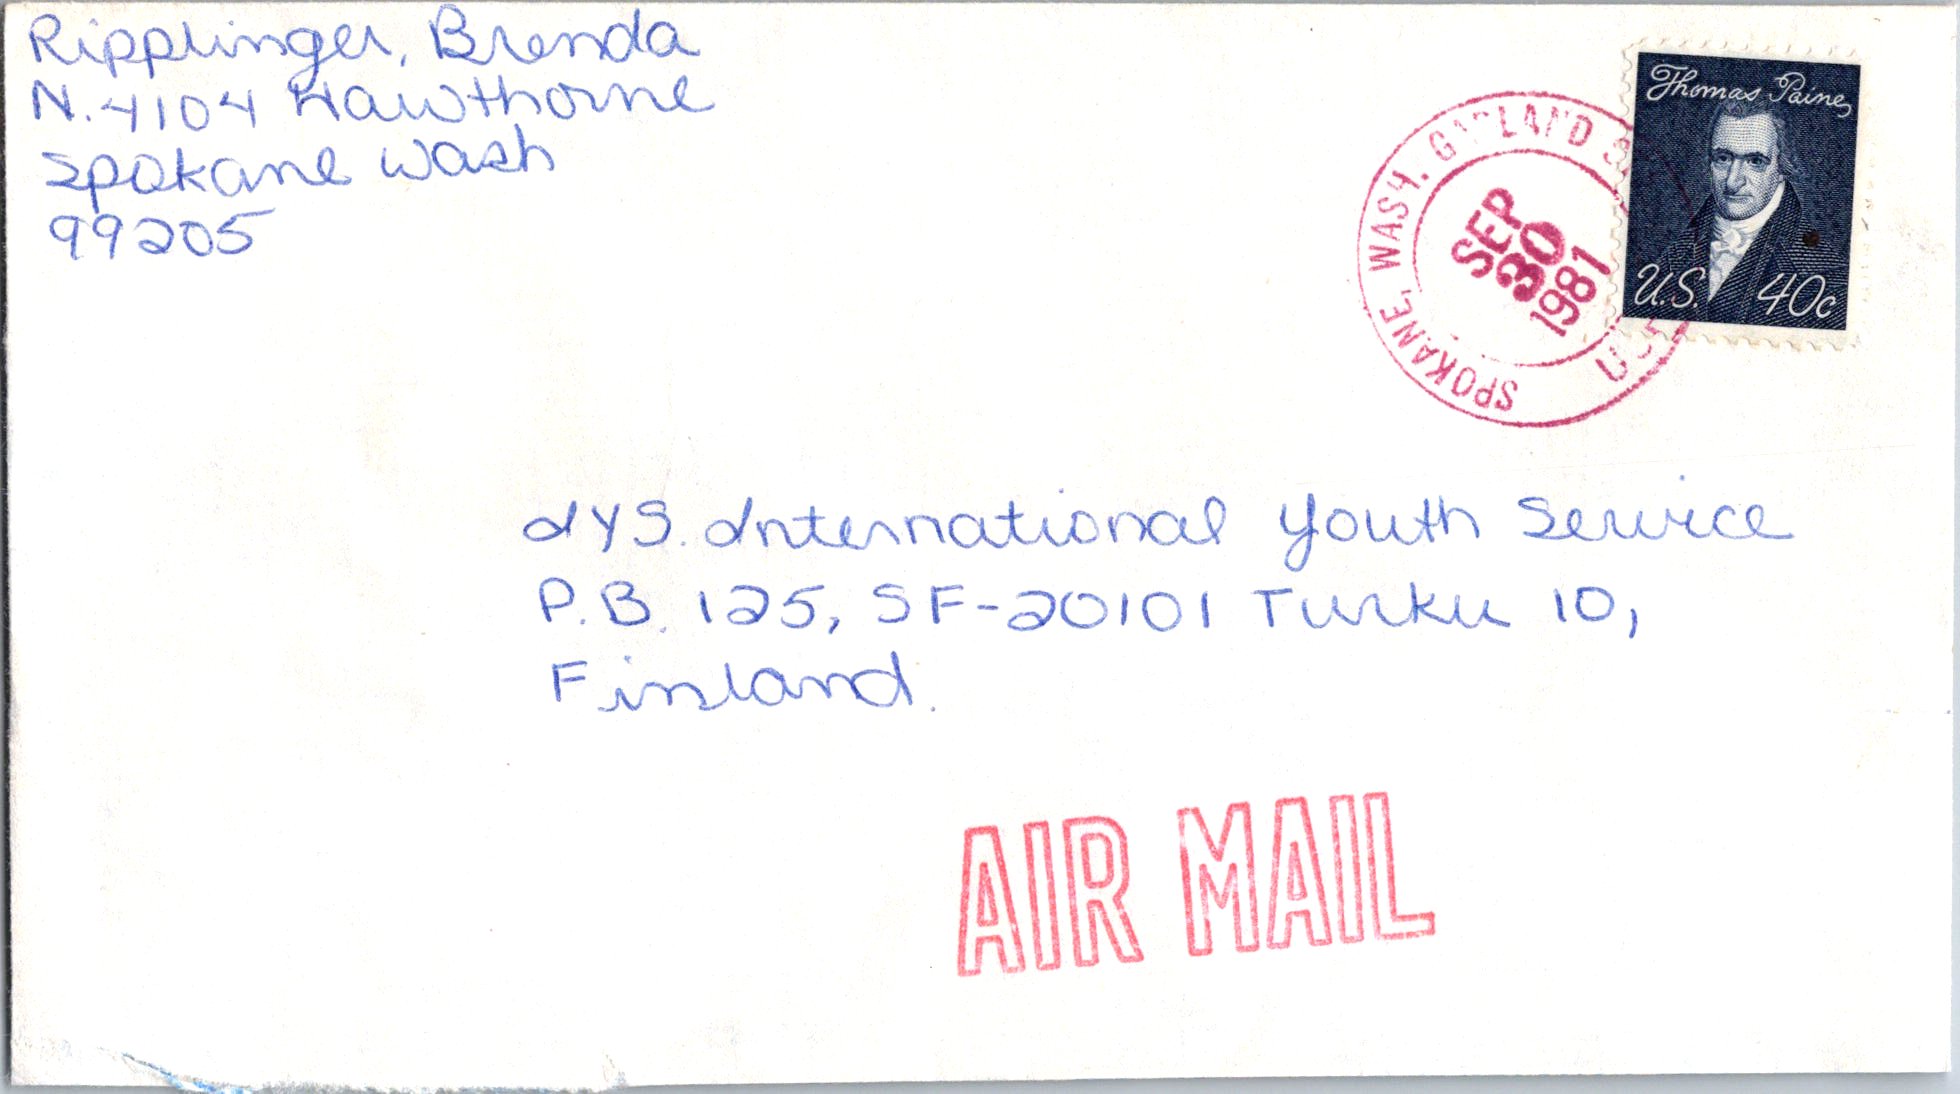 Ripplinger, Brenda
N. 4104 Hawthorne
Spokane Wash
99205
SPOKANE, WASH. GARLAND
SEP
30
1981
Thomas Paine
U.S. 40c
IYS. International Youth Service
P.B. 125, SF-20101 Turku 10,
Finland.
AIR MAIL